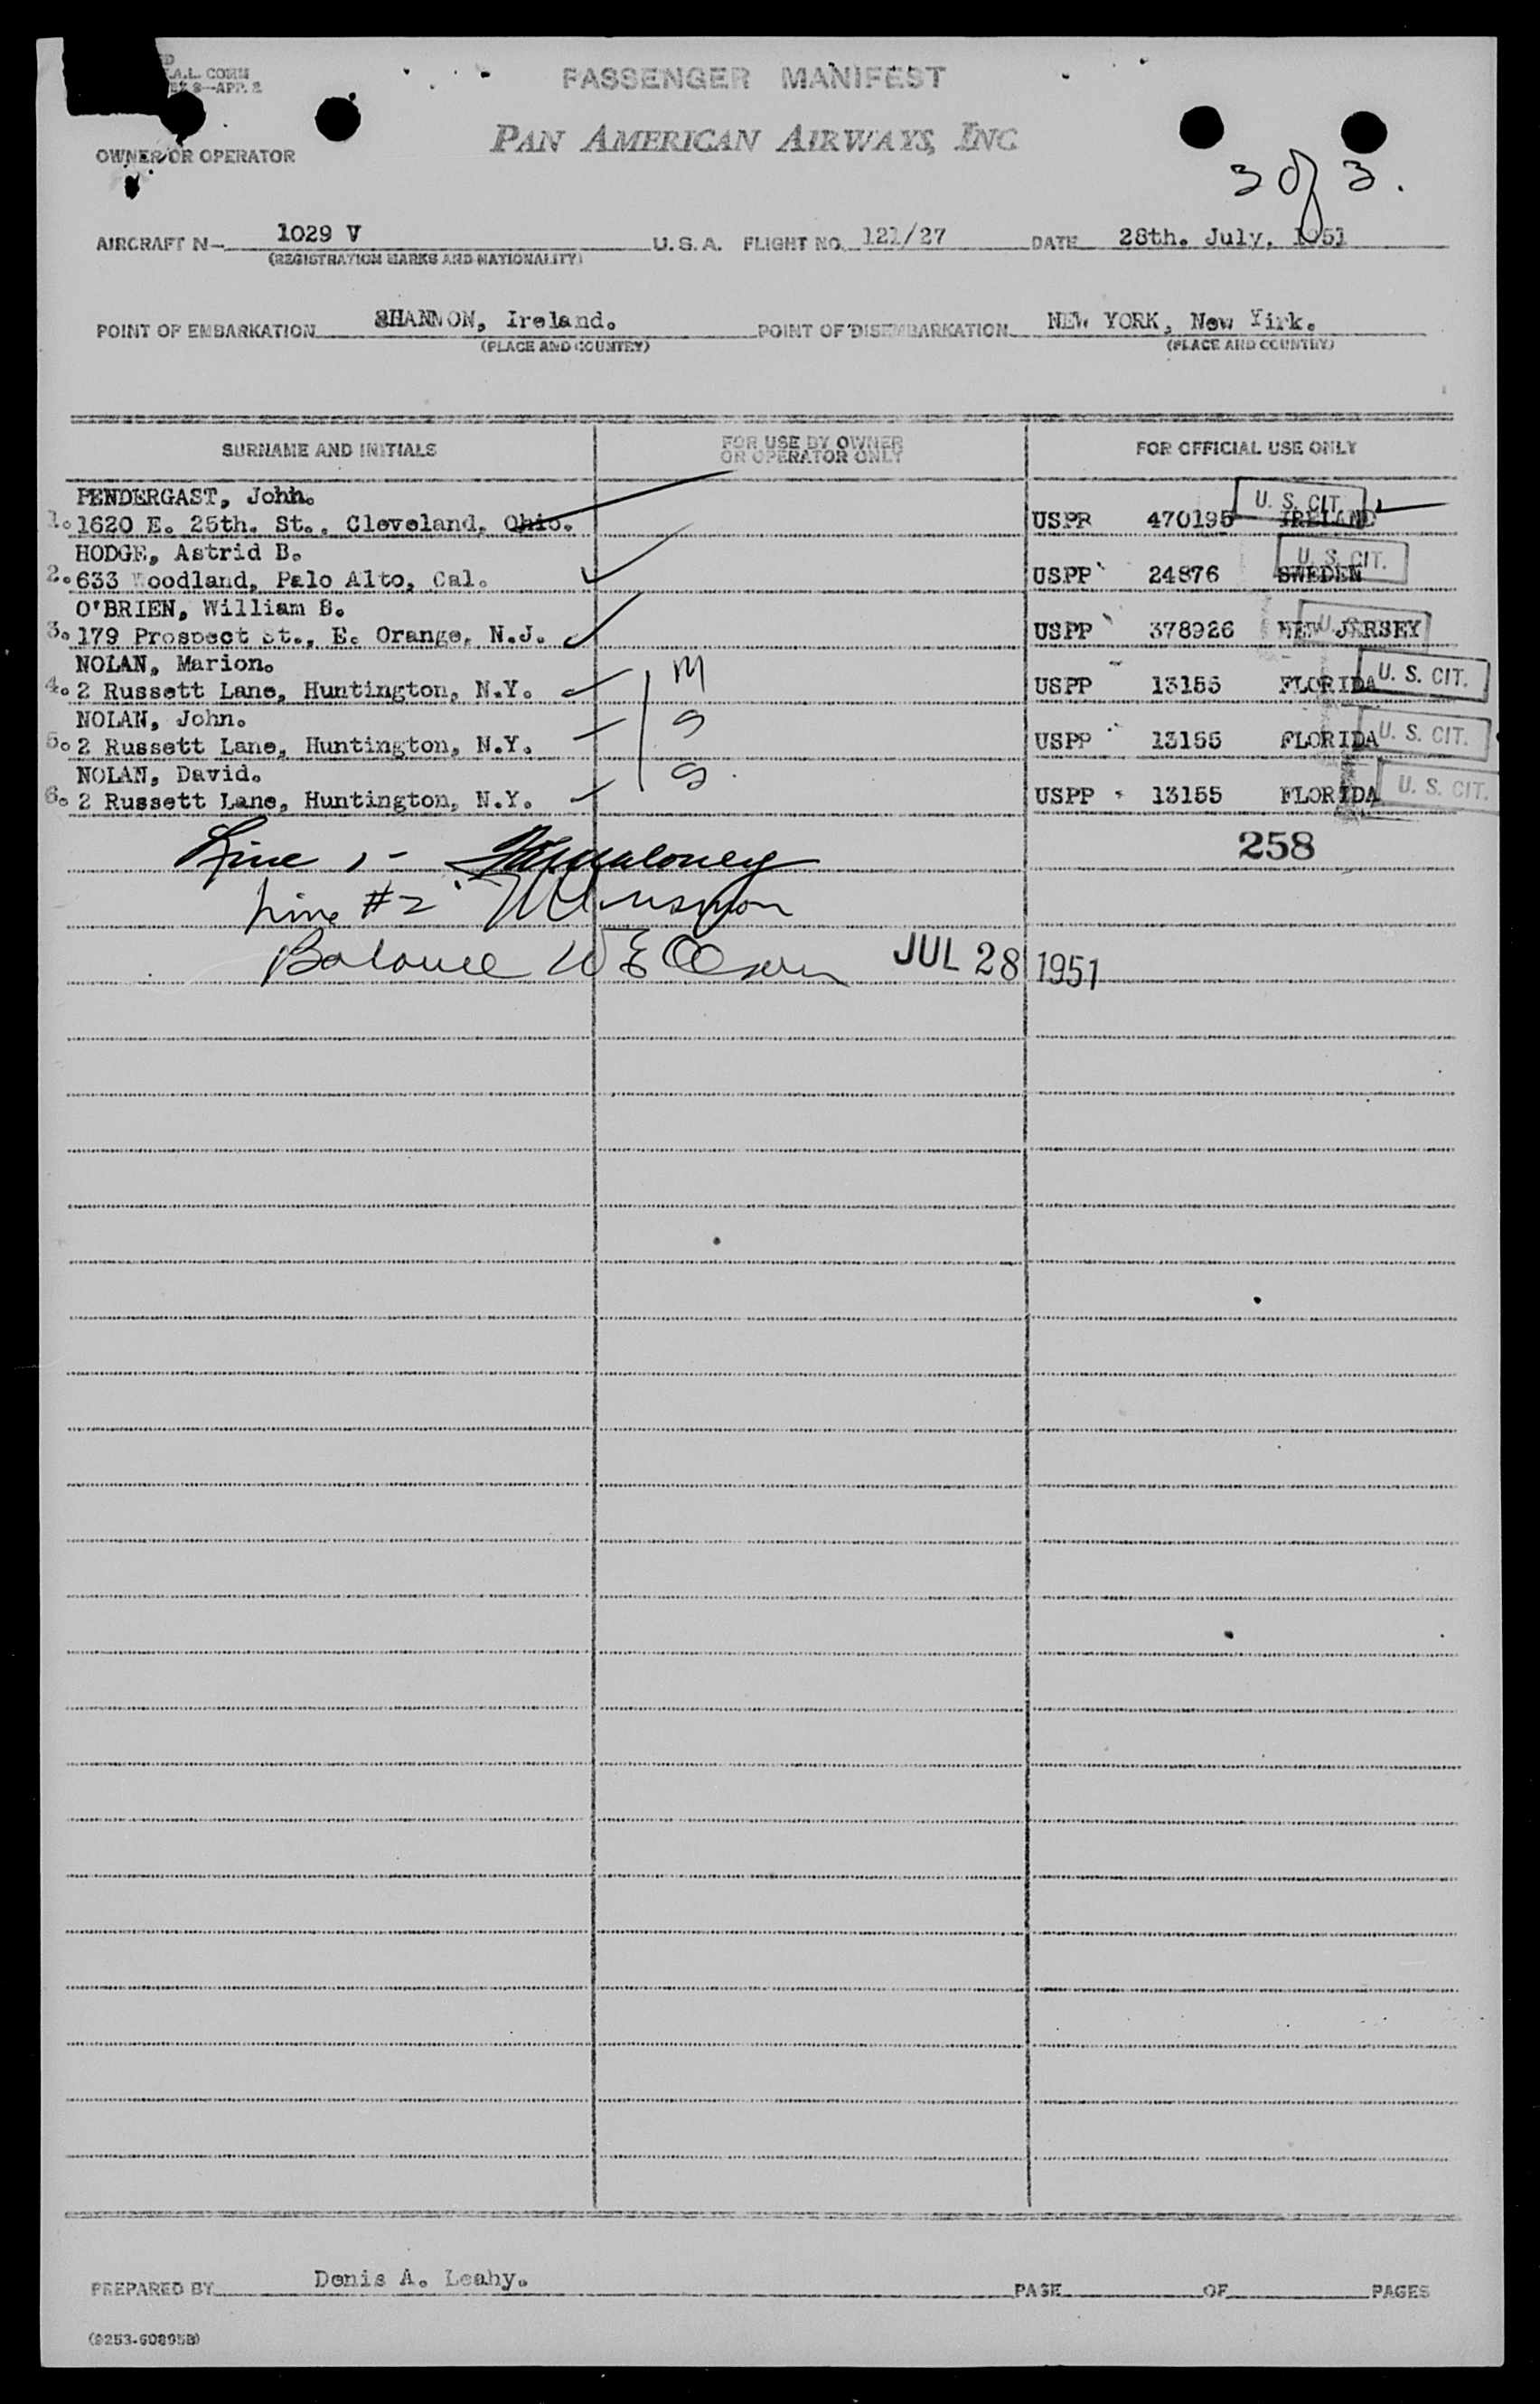 A.L. COMM
9—APP. 2
PASSENGER MANIFEST
PAN AMERICAN AIRWAYS, INC
OWNER OR OPERATOR
3 of 3.
AIRCRAFT N— 1029 V U.S.A. FLIGHT NO. 121/27 DATE 28th. July, 1951
(REGISTRATION MARKS AND NATIONALITY)
POINT OF EMBARKATION SHANNON, Ireland. POINT OF DISEMBARKATION NEW YORK, New Yirk.
(PLACE AND COUNTRY) (PLACE AND COUNTRY)
SURNAME AND INITIALS FOR USE BY OWNER OR OPERATOR ONLY FOR OFFICIAL USE ONLY
PENDERGAST, John. U. S. CIT.
1. 1620 E. 25th. St., Cleveland, Ohio. USPR 470195 IRELAND
HODGE, Astrid B. U. S. CIT.
2. 633 Woodland, Palo Alto, Cal. USPP 24876 SWEDEN
O'BRIEN, William B.
3. 179 Prospect St., E. Orange, N.J. USPP 378926 NEW JERSEY
NOLAN, Marion. M U. S. CIT.
4. 2 Russett Lane, Huntington, N.Y. USPP 13155 FLORIDA
NOLAN, John. S U. S. CIT.
5. 2 Russett Lane, Huntington, N.Y. USPP 13155 FLORIDA
NOLAN, David. S U. S. CIT.
6. 2 Russett Lane, Huntington, N.Y. USPP 13155 FLORIDA
Line 1- 258
Line #2
Balance W E Olsen JUL 28 1951
PREPARED BY Denis A. Leahy. PAGE OF PAGES